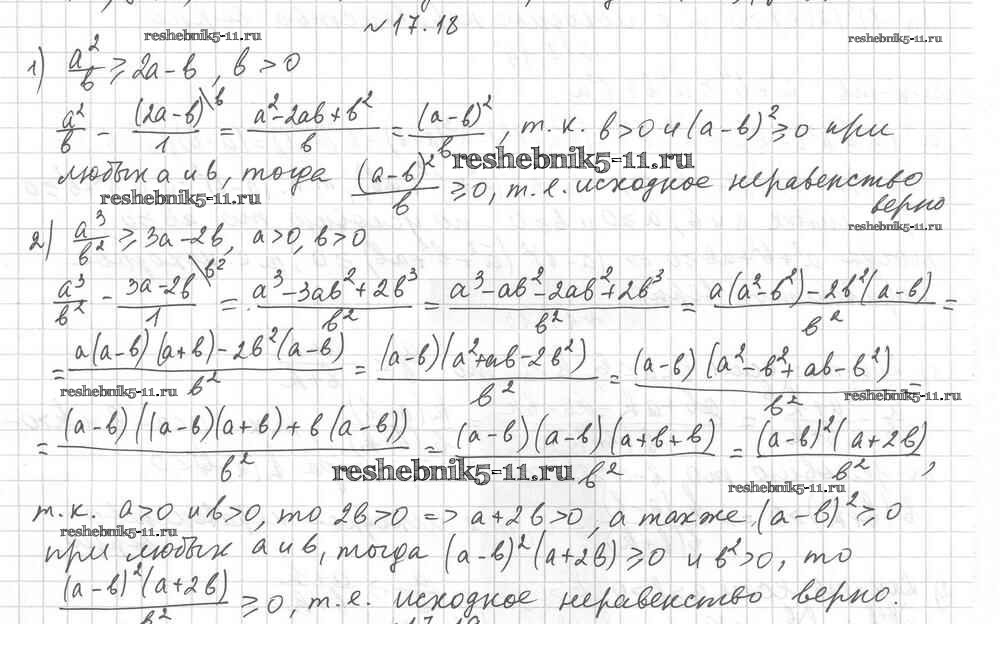 №17.18
reshebnik5-11.ru
reshebnik5-11.ru
1) a²/b ≥ 2a-b, b > 0
a²/b - (2a-b)\b/1 = (a²-2ab+b²)/b = (a-b)²/b, т.к. b>0 и (a-b)²≥0 при
reshebnik5-11.ru
любых a и b, тогда (a-b)²/b ≥0, т.е. исходное неравенство
верно
reshebnik5-11.ru
reshebnik5-11.ru
2) a³/b² ≥ 3a-2b, a>0, b>0
a³/b² - (3a-2b)\b²/1 = (a³-3ab²+2b³)/b² = (a³-ab²-2ab²+2b³)/b² = (a(a²-b²)-2b²(a-b))/b² =
= (a(a-b)(a+b)-2b²(a-b))/b² = (a-b)(a²+ab-2b²)/b² = (a-b)(a²-b²+ab-b²)/b² =
reshebnik5-11.ru
reshebnik5-11.ru
= (a-b)((a-b)(a+b)+b(a-b))/b² = (a-b)(a-b)(a+b+b)/b² = (a-b)²(a+2b)/b²,
reshebnik5-11.ru
reshebnik5-11.ru
т.к. a>0 и b>0, то 2b>0 => a+2b>0, а также (a-b)²≥0
reshebnik5-11.ru
при любых a и b, тогда (a-b)²(a+2b)≥0 и b²>0, то
(a-b)²(a+2b)/b² ≥0, т.е. исходное неравенство верно.